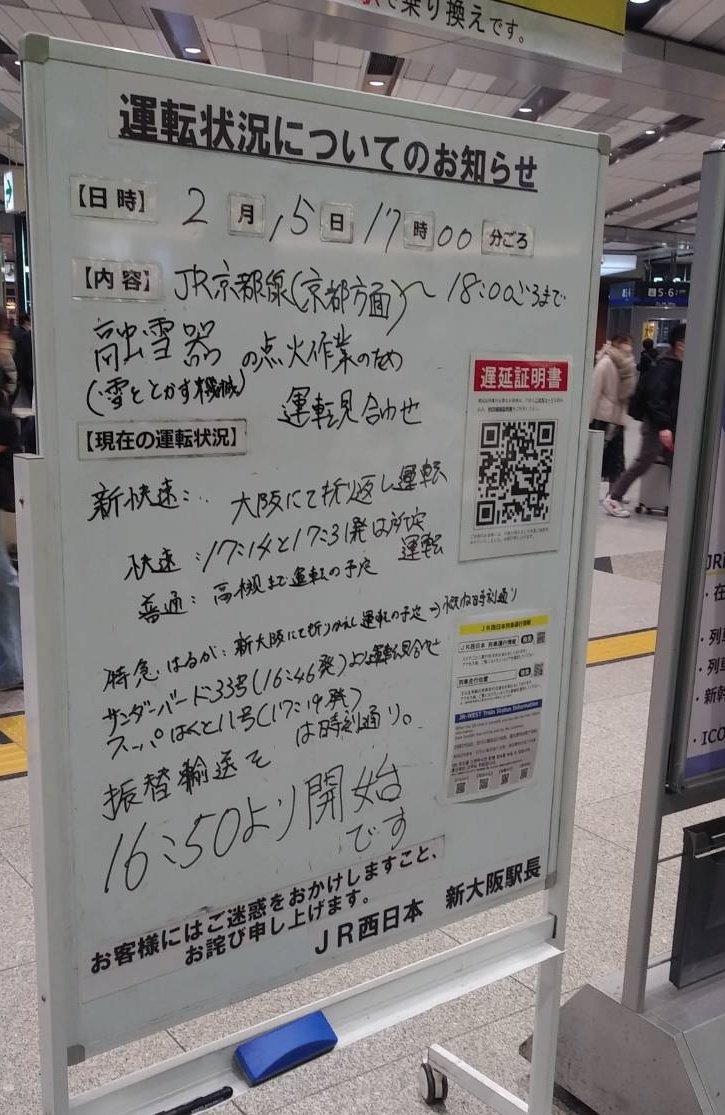 で乗り換えです。
運転状況についてのお知らせ
【日時】 2月15日17時00分ごろ
【内容】 JR京都線(京都方面)～18:00ごろまで
融雪器の点火作業のため
(雪をとかす機械) 運転見合わせ
【現在の運転状況】
新快速:大阪にて折り返し運転
快速:17:14と17:31発は所定
運転
普通:高槻まで運転の予定
特急 はるか:新大阪にて折りかえし運転の予定→概ね時刻通り
サンダーバード33号(16:46発)より運転見合せ
スーパはくと11号(17:19発)
は時刻通り。
振替輸送を
16:50より開始
です
お客様にはご迷惑をおかけしますこと、
お詫び申し上げます。
JR西日本 新大阪駅長
遅延証明書
JR西日本列車運行情報
JR西日本 列車運行情報
列車走行位置
JR-WEST Train Status Information
5・6
JR
・在
・列
・列車
・新幹
・ICO